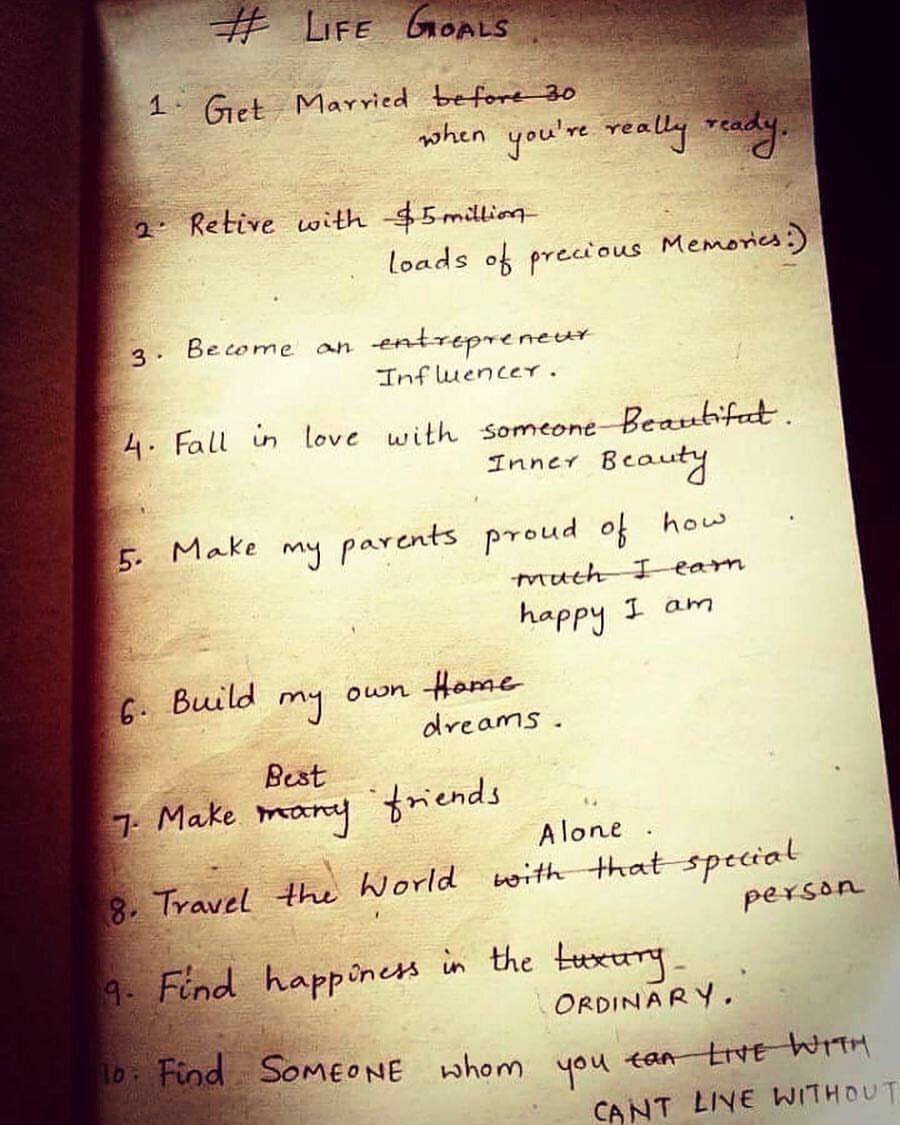 # LIFE GOALS
1. Get Married ~~before 30~~
when you're really ready.
2. Retire with ~~$5 million~~
loads of precious Memories:)
3. Become an ~~entrepreneur~~
Influencer.
4. Fall in love with ~~someone Beautiful~~.
Inner Beauty
5. Make my parents proud of how
~~much I earn~~
happy I am
6. Build my own ~~Home~~
dreams.
Best
7. Make ~~many~~ friends
Alone.
8. Travel the World ~~with that special~~
person
9. Find happiness in the ~~luxury~~
ORDINARY.
10. Find SOMEONE whom you ~~can LIVE WITH~~
CANT LIVE WITHOUT